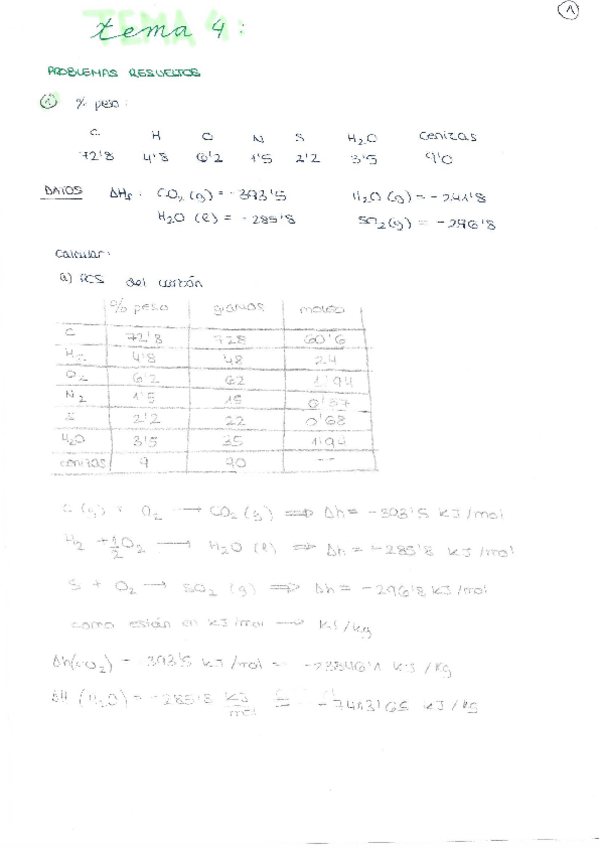 1
tema 4:
PROBLEMAS RESUELTOS
1 % peso:
C H O N S H2O cenizas
72'8 4'8 6'2 1'5 2'2 3'5 9'0
DATOS ΔHf: CO2 (g) = -393'5 H2O (g) = -241'8
H2O (l) = -285'8 SO2 (g) = -296'8
Calcular:
a) PCS del carbón
% peso gramos moles
C 72'8 728 60'6
H2 4'8 48 24
O2 6'2 62 1'94
N2 1'5 15 0'57
S 2'2 22 0'68
H2O 3'5 35 1'94
cenizas 9 90 --
C (g) + O2 → CO2 (g) ⇒ Δh = -393'5 KJ/mol
H2 + 1/2 O2 → H2O (l) ⇒ Δh = -285'8 KJ/mol
S + O2 → SO2 (g) ⇒ Δh = -296'8 KJ/mol
como están en KJ/mol → KJ/kg
Δh(CO2) = 393'5 KJ/mol = -23846'1 KJ/kg
(H2O) = -285'8 KJ/mol = -7413'65 KJ/kg